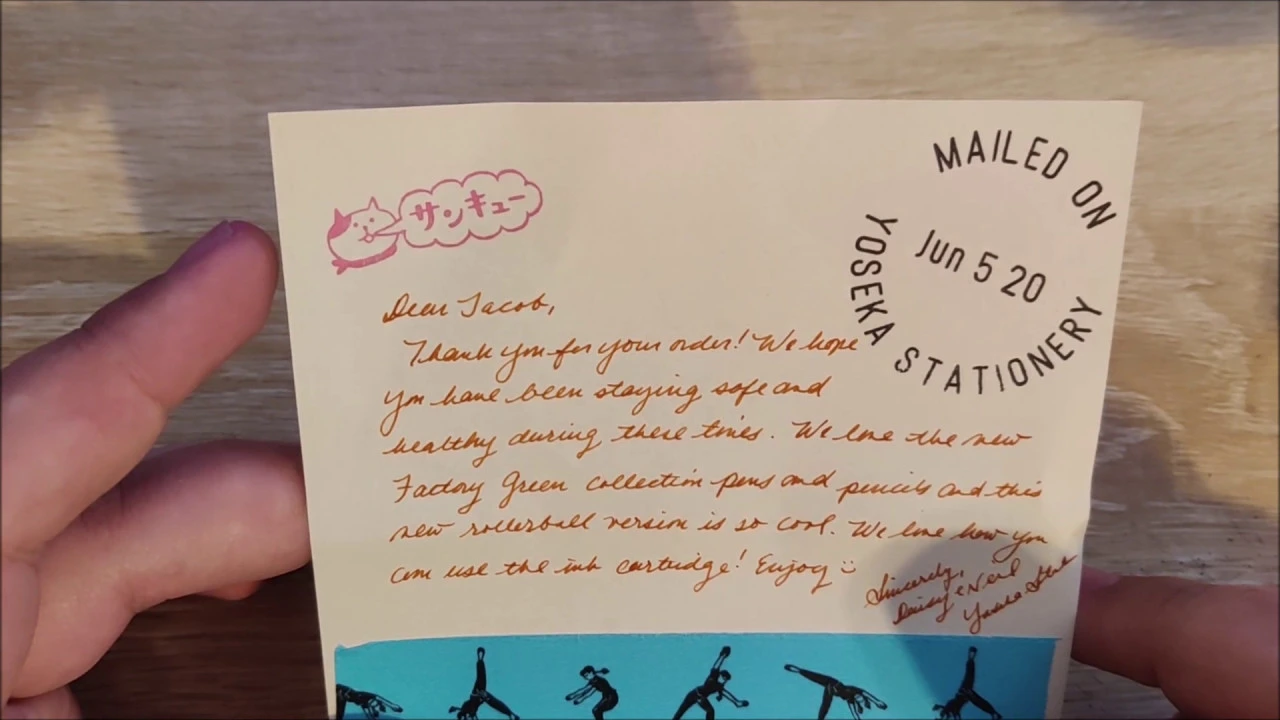 サンキュー
MAILED ON
Jun 5 20
YOSEKA STATIONERY
Dear Jacob,
Thank you for your order! We hope
you have been staying safe and
healthy during these times. We love the new
Factory Green collection pens and pencils and this
new rollerball version is so cool. We love how you
can use the ink cartridge! Enjoy
Sincerely,
Daisy & Neil
Yoseka